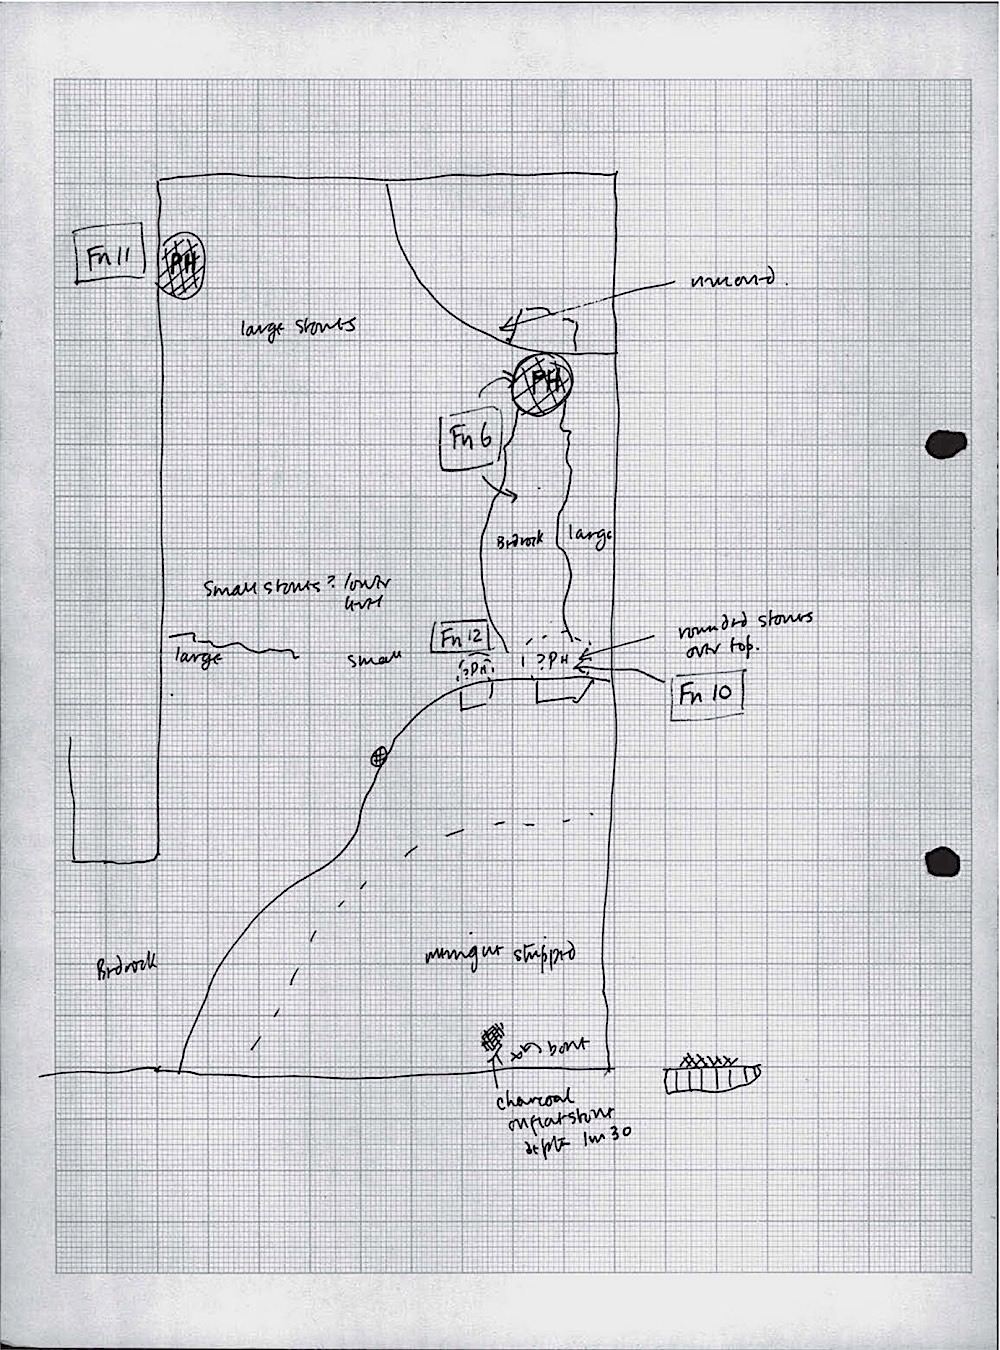 Fn 11
PH
removed.
large stones
PH
Fn 6
Bedrock
large
Small stones? lower
level
Fn 12
rounded stones
over top.
large
small
?PH
?PH
Fn 10
Bedrock
stripped
bone
charcoal
on flat stone
depth 1m 30